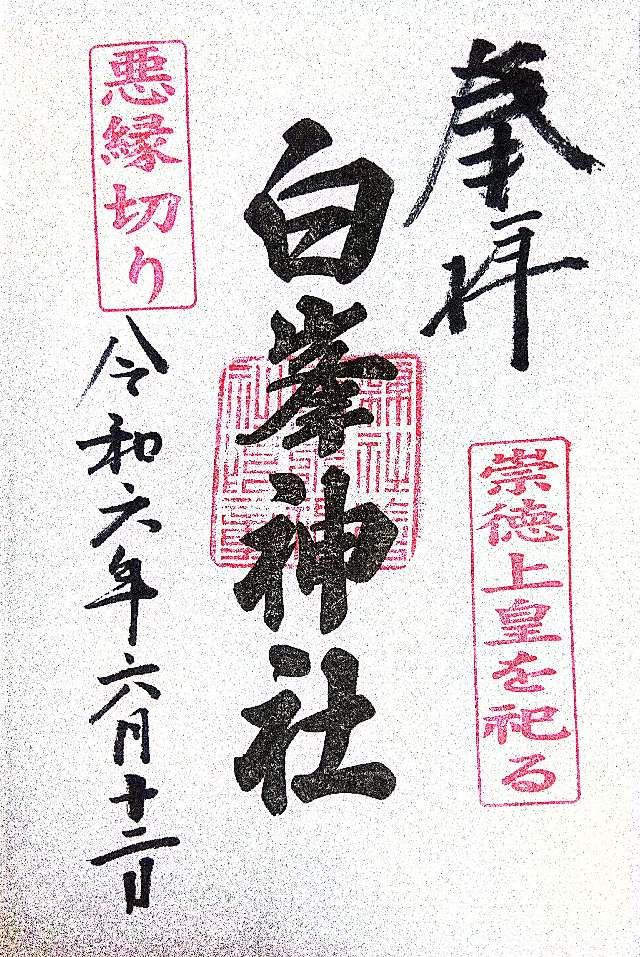 奉拝
崇徳上皇を祀る
白峯神社
悪縁切り
令和六年六月十二日